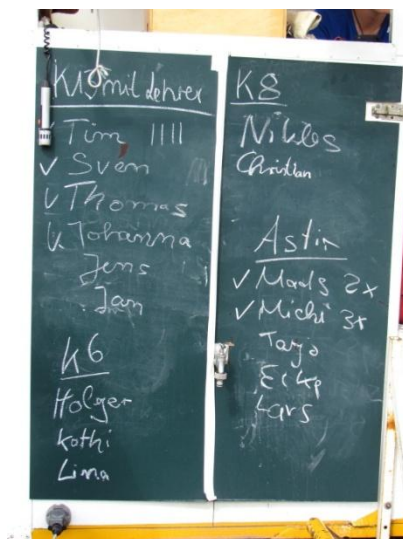 K13 mit Lehrer
Tim IIII
✓ Sven
✓ Thomas
✓ Johanna
Jens
Jan
K6
Holger
Kathi
Lima
K8
Niklas
Christian
Astir
✓ Mads 2x
✓ Michi 3x
Eike
Lars